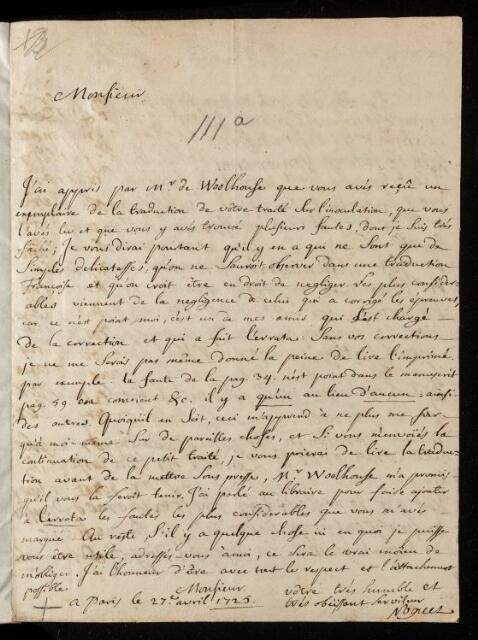 Monsieur
111a
J'ai appris par Mr. de Woolhouse que vous avés reçû un
exemplaire de la traduction de vôtre traité sur l'inoculation, que vous
l'avés lu et que vous y avés trouvé plusieurs fautes, dont je suis très
faché; Je vous dirai pourtant qu'il y en a qui ne sont que de
simples delicatesses, qu'on ne sauroit observer dans une traduction
françoise et qu'on croit être en droit de negliger. Les plus consider-
ables viennent de la negligence de celui qui a corrigé les épreuves,
car ce n'est point moi, c'est un de mes amis qui s'est chargé
de la correction et qui a fait l'errata. Sans vos corrections
je ne me serois pas même donné la peine de lire l'imprimé.
par exemple: la faute de la pag. 34. n'est point dans le manuscrit
pag. 59. convient &c. il y a qu'un au lieu d'aucun, ainsi
des autres. Quoiqu'il en soit, ceci m'apprend à ne plus me fier
qu'à moi-même sur de pareilles choses, et si vous m'envoiés la
continuation de ce petit traité, je vous prierai de lire la traduc-
tion avant de la mettre sous presse, Mr. Woolhouse m'a promis
qu'il vous la feroit tenir. J'ai parlé au libraire pour faire ajouter
à l'errata les fautes les plus considerables que vous m'avés
marqué. Au reste s'il y a quelque chose ici en quoi je puisse
vous être utile, adressés-vous à moi, ce sera le vrai moien de
m'obliger. J'ai l'honneur d'être avec tout le respect et l'attachement
possible.
Monsieur
vôtre très humble et
très obeissant serviteur
a Paris le 27.e avril 1725.
Noguez